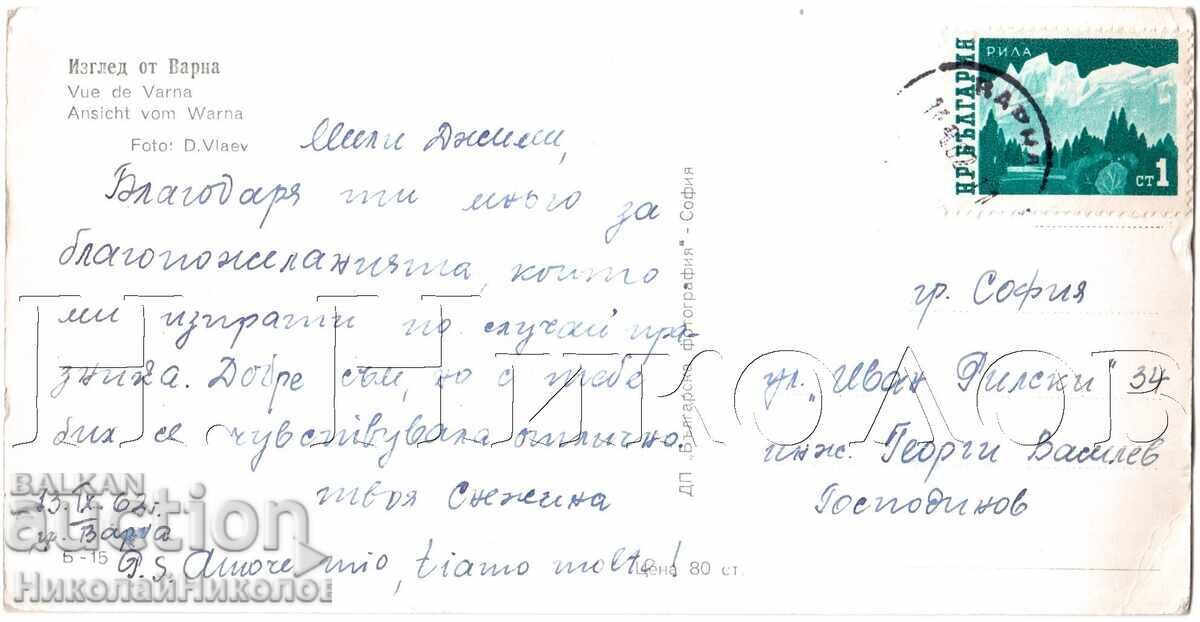 Изглед от Варна
Vue de Varna
Ansicht vom Warna
Foto: D. Vlaev
Мили Джими,
Благодаря ти много за
благопожеланията, които
ми изпрати по случай пра-
зника. Добре съм, но с тебе
бих се чувствувала отлично.
твоя Снежина
23.IX.62г.
гр. Варна
P.S. Amore mio, tiamo molto!
Б - 15
Цена 80 ст.
ДП „Българска фотография" - София
НР БЪЛГАРИЯ
РИЛА
СТ 1
ВАРНА
гр. София
ул. "Иван Рилски" 34
инж. Георги Василев
Господинов
Н. Николов
BALKAN
auction
НиколайНиколов